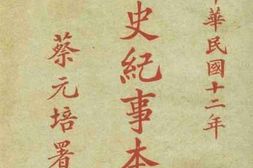 中華民國十二年
史紀事本
蔡元培署